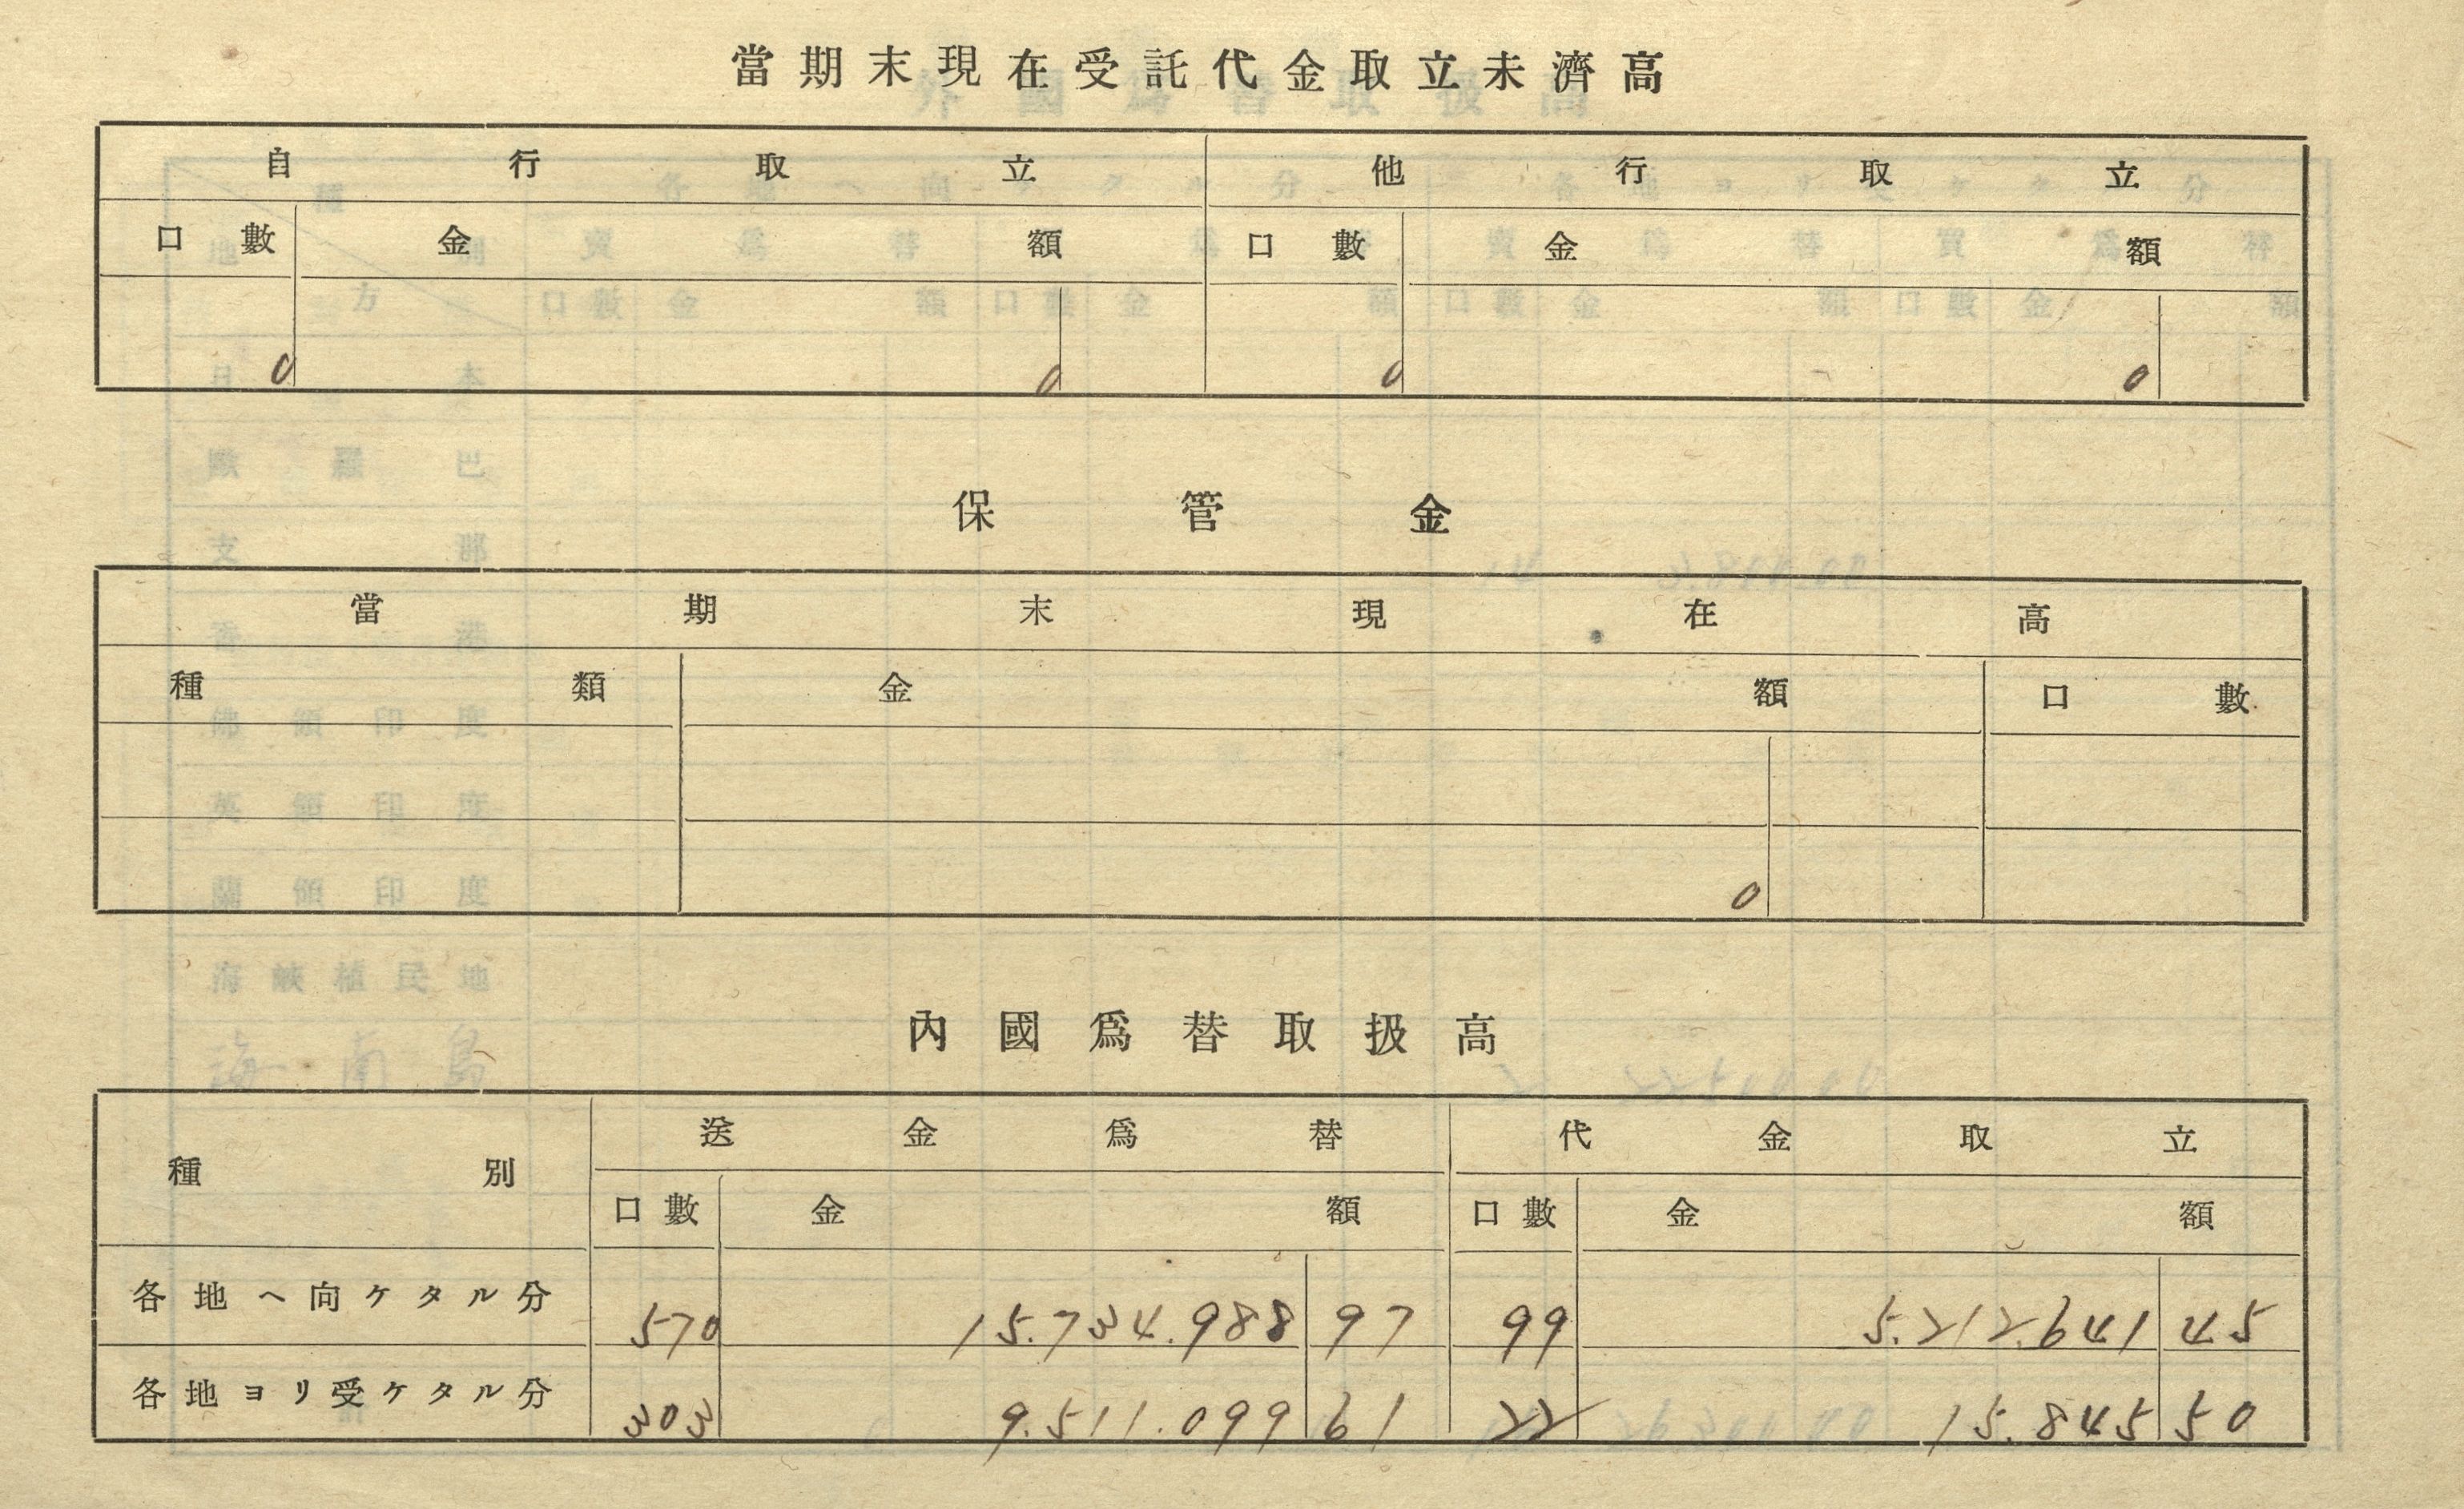 當期末現在受託代金取立未濟高
自行取立 他行取立
口數 金額 口數 金額
0 0 0 0
保管金
當期末現在高
種類 金額 口數
0
內國爲替取扱高
種別 送金爲替 代金取立
口數 金額 口數 金額
各地ヘ向ケタル分 570 15.734.988 97 99 5.212.641 45
各地ヨリ受ケタル分 303 9.511.099 61 22 15.845 50